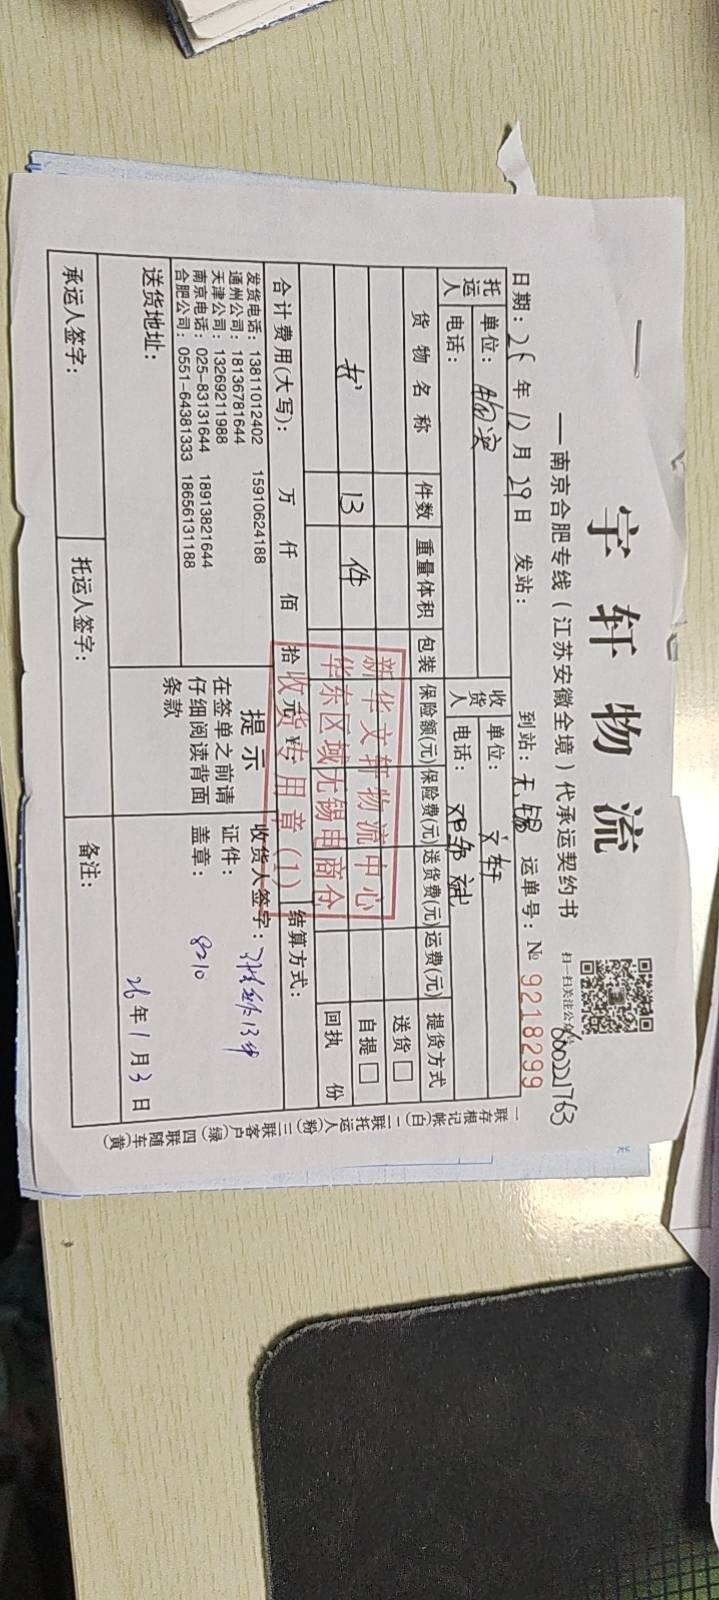 宇轩物流
—南京合肥专线（江苏安徽全境）代承运契约书
扫一扫关注公众号
600221763
日期：25年12月29日 发站： 到站：无锡 运单号：№ 9218299
托运人 单位： 收货人 单位：文轩
电话： 电话：邓邹斌
货物名称 件数 重量体积 包装 保险额(元) 保险费(元) 送货费(元) 运费(元) 提货方式
送货□
书 13 件 自提□
回执 份
合计费用(大写)： 万 仟 佰 拾 元 ¥： 结算方式：
新华文轩物流中心
华东区域无锡电商仓
收货专用章(1)
发货电话：13811012402 15910624188
通州公司：18136781644
天津公司：13269211988
南京电话：025-83131644 18913821644
合肥公司：0551-64381333 18656131188
提示
在签单之前请
仔细阅读背面
条款
收货人签字： 13件
证件：
盖章： 8210
送货地址：
26年1月3日
承运人签字： 托运人签字： 备注：
一联存根记帐(白) 二联托运人(粉) 三联客户(绿) 四联随车(黄)